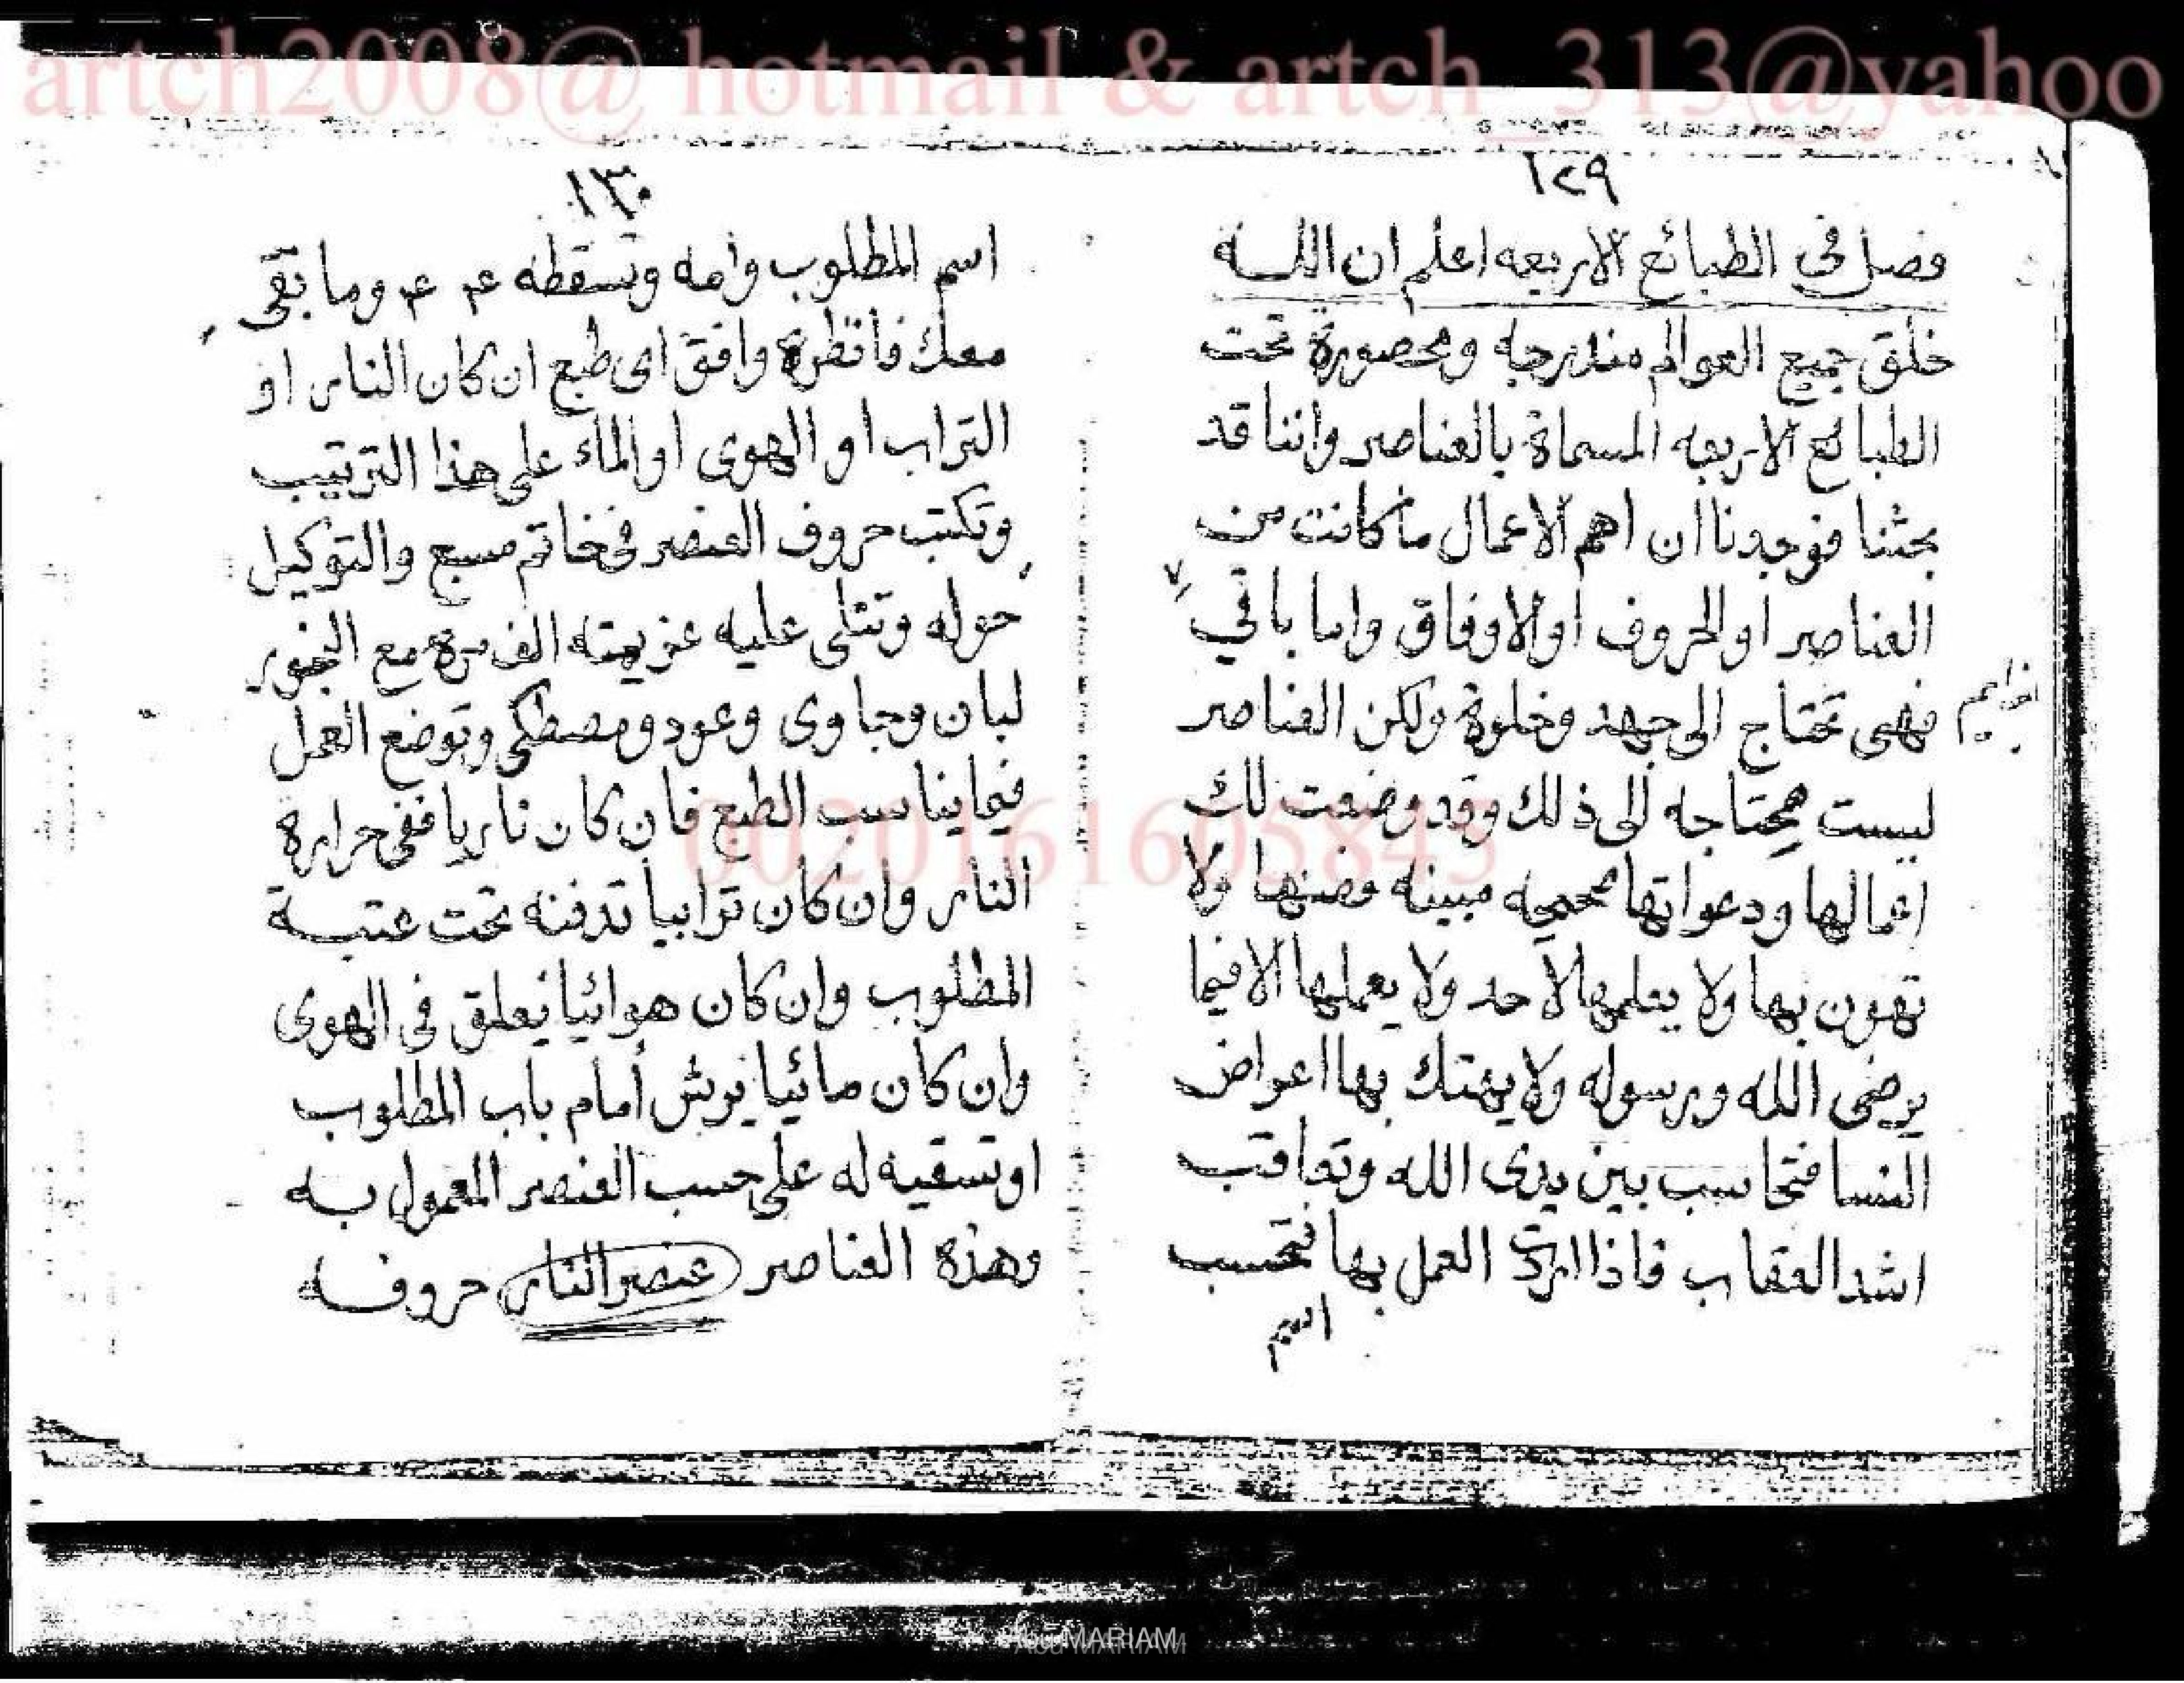 artch2008@ hotmail & artch_313@yahoo
١٢٩
فصل في الطبائع الاربعه اعلم ان الله
خلق جميع العوالم مندرجه ومحصورة تحت
الطبائع الاربعه المسماة بالعناصر واننا قد
بحثنا فوجدنا ان اهم الاعمال ما كانت من
العناصر او الحروف او الاوفاق واما باقي
فهي تحتاج الى جهد وخلوة ولكن العناصر
ليست محتاجه الى ذلك وقد وضعت لك
اعمالها ودعواتها صحيحه مبينه فصنها ولا
تهون بها ولا يعلمها لأحد ولا يعملها الا فيما
يرضى الله ورسوله ولا يهتك بها اعواض
النسا فتحاسب بين يدى الله وتعاقب
اشد العقاب فاذا اردت العمل بها فتحسب
اسم
١٣٠
اسم المطلوب وامه وتسقطه ٤م ٤ وما بقى
معك فانظره وافق اى طبع ان كان النار او
التراب او الهوى او الماء على هذا الترتيب
وتكتب حروف العنصر في خاتم مسبع والتوكيل
حوله وتتلى عليه عزيمته الف مرة مع البخور
لبان وجاوى وعود ومصطكى وتوضع العمل
فيما يناسب الطبع فان كان ناريا ففى حرارة
النار وان كان ترابيا تدفنه تحت عتبة
المطلوب وان كان هوائيا يعلق في الهوى
وان كان مائيا يرش أمام باب المطلوب
او تسقيه له على حسب العنصر المعمول به
وهذه العناصر عنصر النار حروفه
00201616058
Abu MARIAM